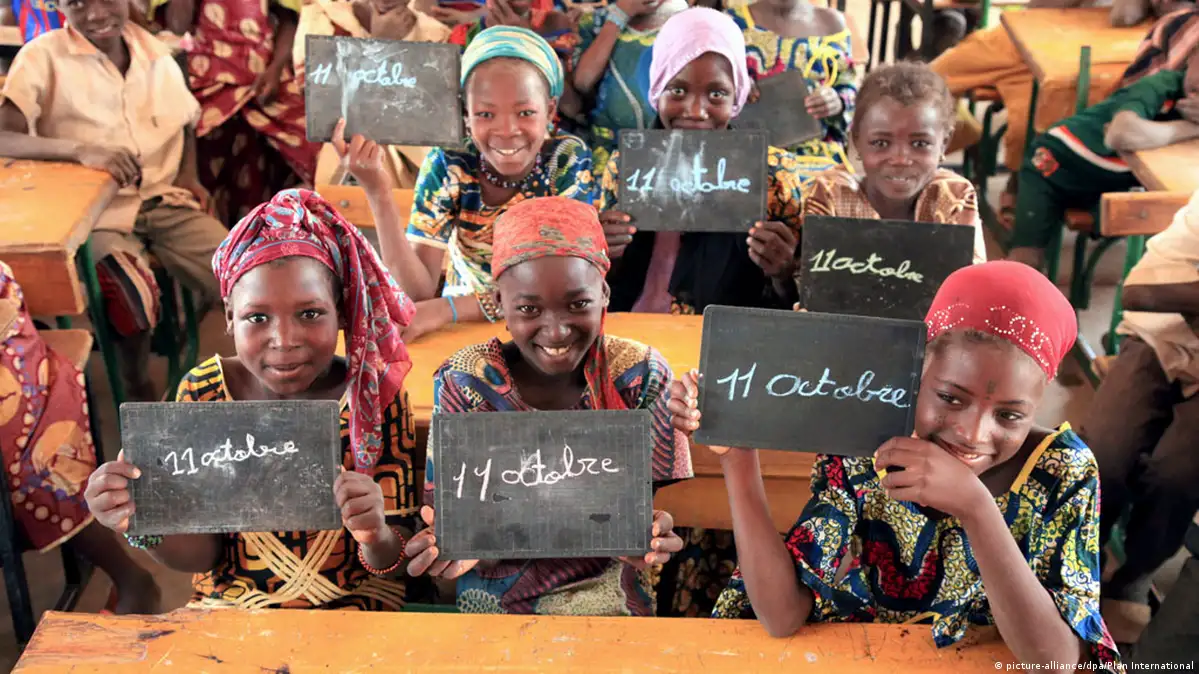 11 octobre
11 octobre
11 octobre
11 octobre
11 octobre
11 octobre
© picture-alliance/dpa/Plan International